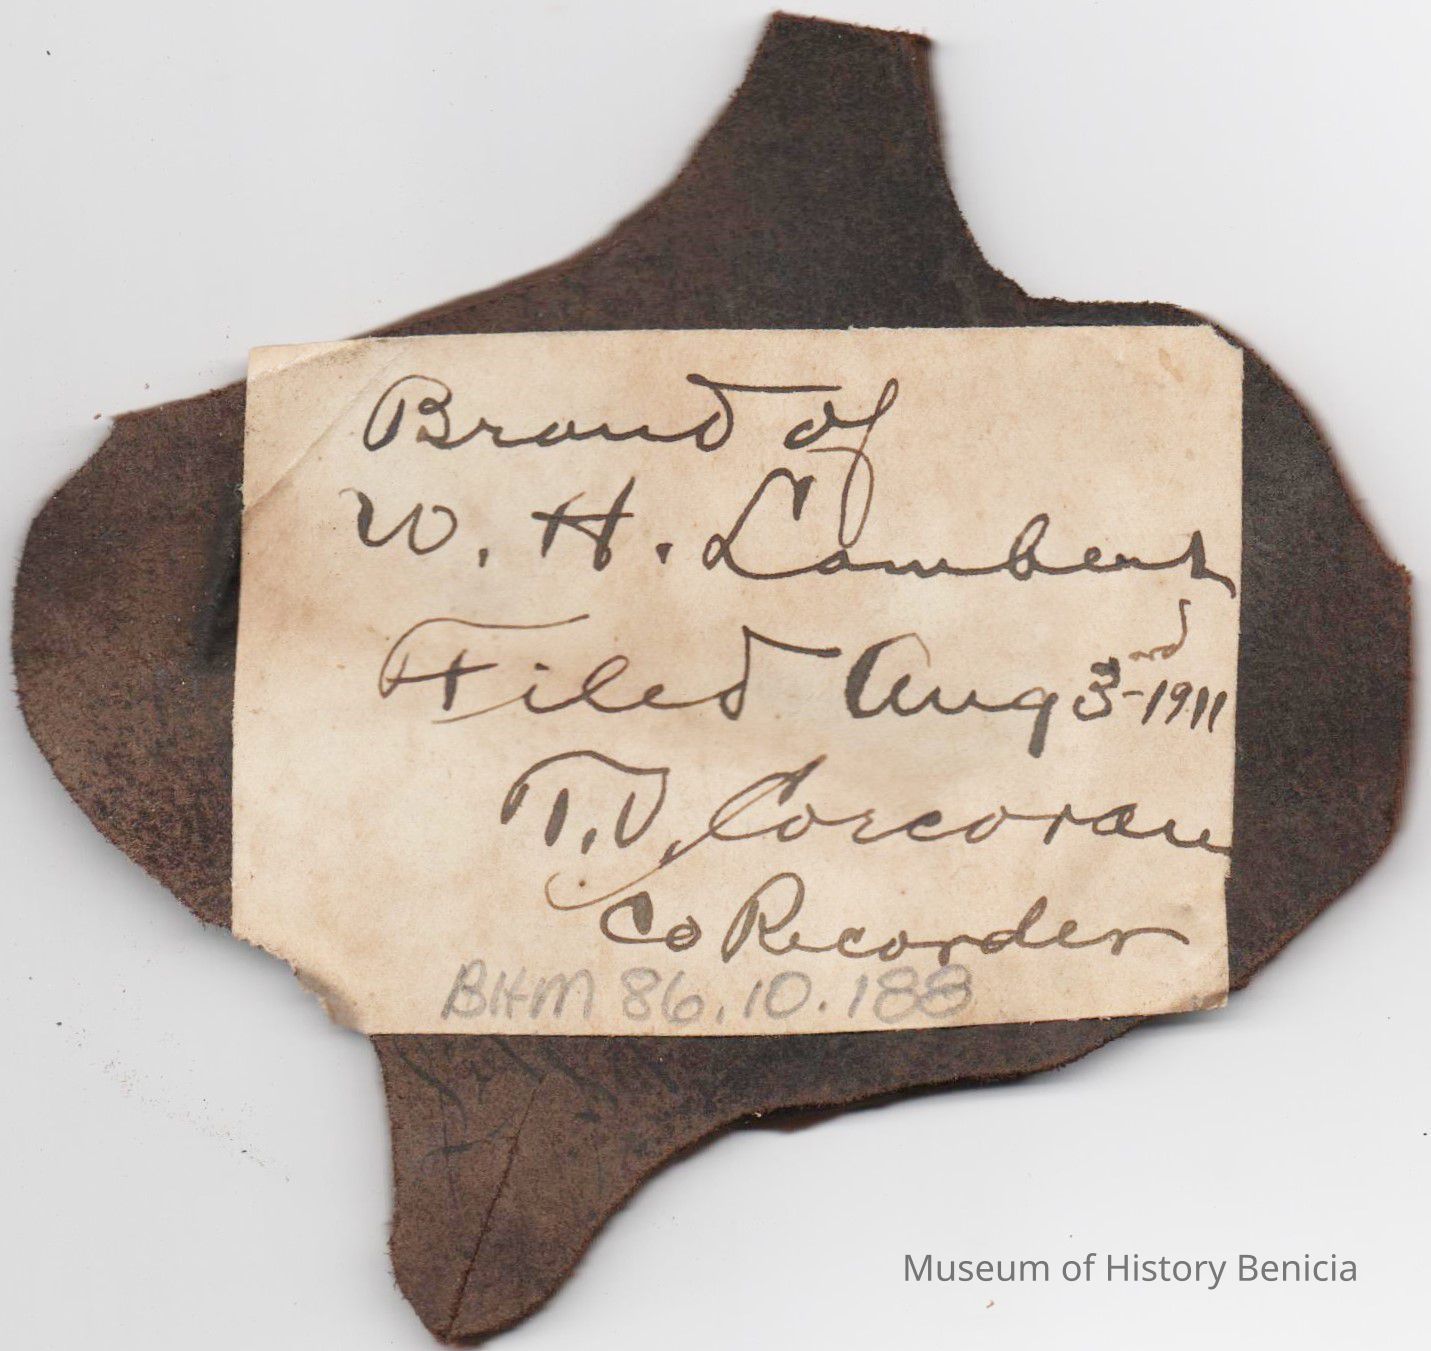 Brand of
W. H. Lambert
Filed Aug 3rd-1911
T. D. Corcoran
Co Recorder
BHM 86.10.188
Museum of History Benicia